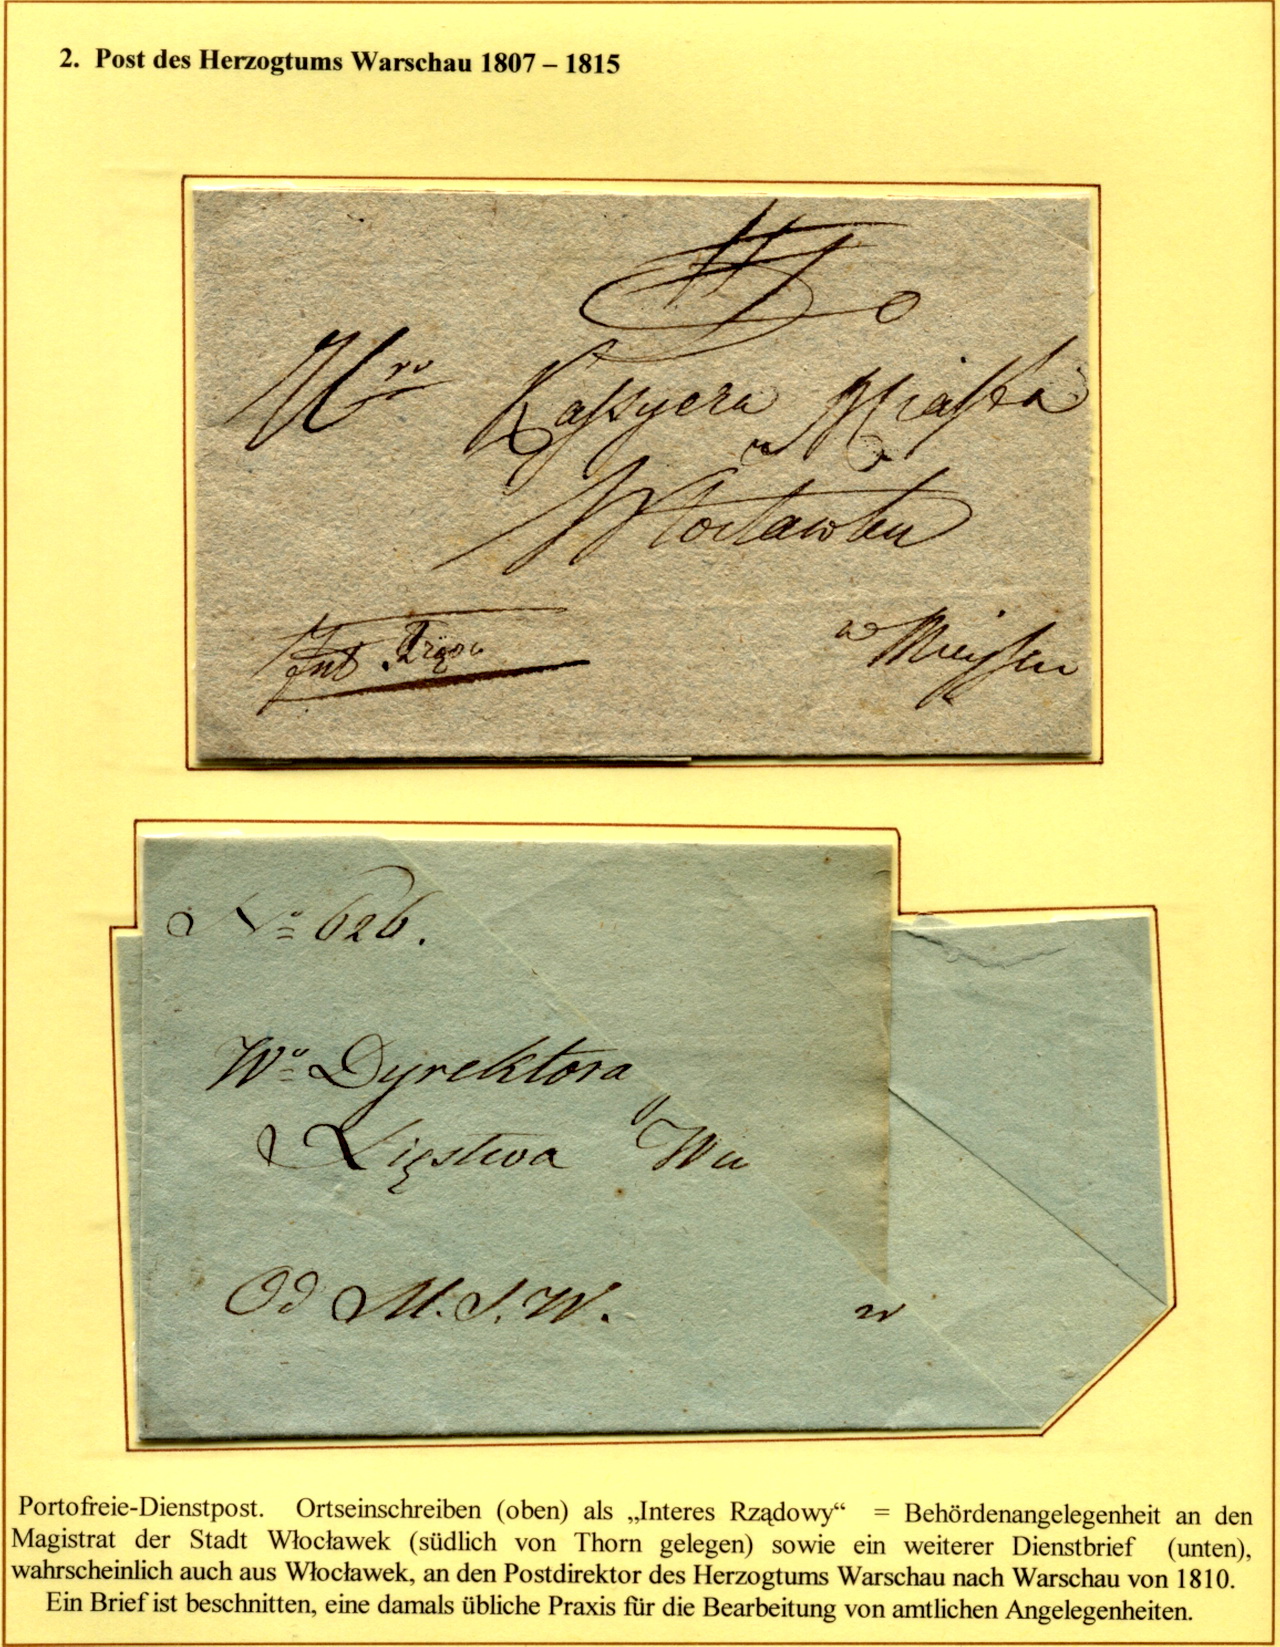 2. Post des Herzogtums Warschau 1807 – 1815
Do
Kassyera Miasta
Włocławku
Int Rządo
w Mieyscu
No 626.
Wo Dyrektora
Xięstwa Wa
Od M. S. W.
w
Portofreie-Dienstpost. Ortseinschreiben (oben) als „Interes Rządowy“ = Behördenangelegenheit an den
Magistrat der Stadt Włocławek (südlich von Thorn gelegen) sowie ein weiterer Dienstbrief (unten),
wahrscheinlich auch aus Włocławek, an den Postdirektor des Herzogtums Warschau nach Warschau von 1810.
Ein Brief ist beschnitten, eine damals übliche Praxis für die Bearbeitung von amtlichen Angelegenheiten.